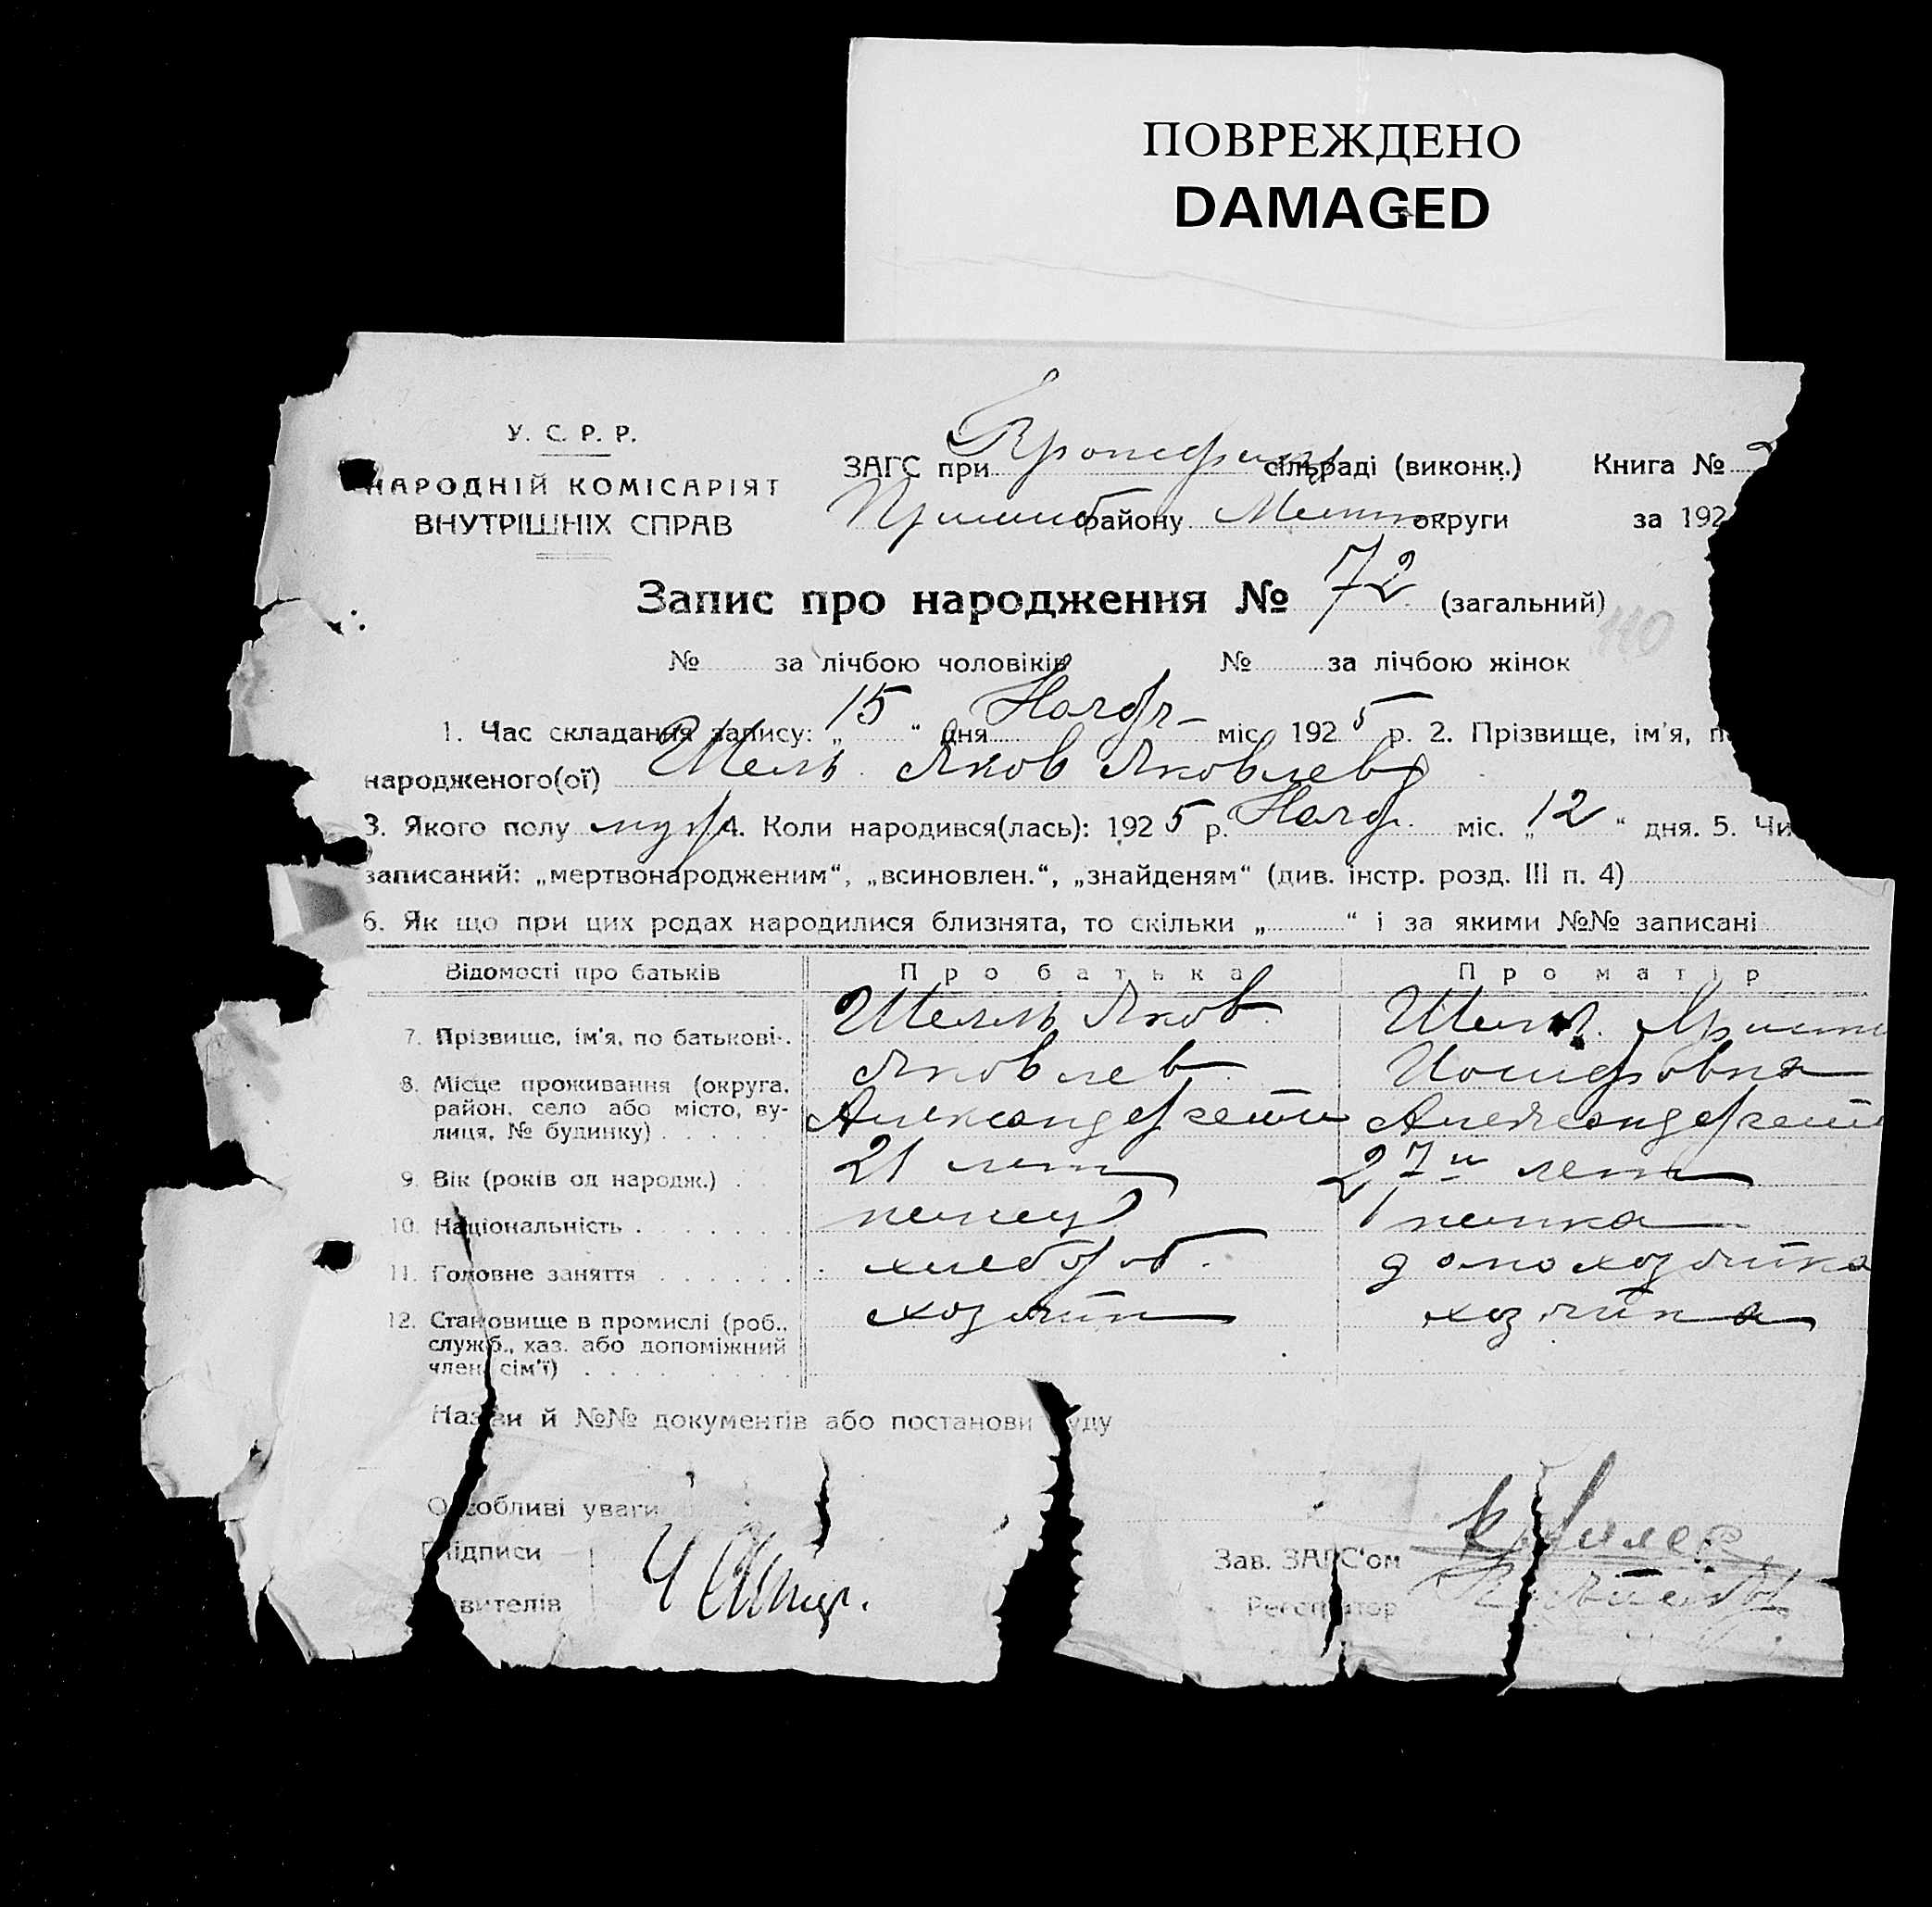 ПОВРЕЖДЕНО
DAMAGED
У. С. Р. Р.
НАРОДНІЙ КОМІСАРІЯТ
ВНУТРІШНІХ СПРАВ
ЗАГС при сільраді (виконк.) Книга №
Пришиб району Мелит округи за 192
Запис про народження № 72 (загальний)
110
№ за лічбою чоловіків № за лічбою жінок
1. Час складання запису: „15“ дня Ноябр міс. 1925 р. 2. Прізвище, ім'я, п
народженого(ої) Шель Яков Яковлев
3. Якого полу муж 4. Коли народився(лась): 1925 р. Нояб. міс. „12“ дня. 5. Чи
записаний: „мертвонародженим“, „всиновлен.“, „знайденям“ (див. інстр. розд. III п. 4)
6. Як що при цих родах народилися близнята, то скільки „ “ і за якими №№ записані
Відомості про батьків Про батька Про матір
7. Прізвище, ім'я, по батькові. Шелль Яков Яковлев Иосифовна
8. Місце проживання (округа, район, село або місто, вулиця, № будинку) Александергейм Александергейм
9. Вік (років од народж.) 21 лет 27 лет
10. Національність немец немка
11. Головне заняття хлебороб. домохозяйка
12. Становище в промислі (роб., служб., хаз. або допоміжний член сім'ї) хозяин хозяйка
Назви й №№ документів або постанови суду
Особливі уваги
Підписи
явителів
Зав. ЗАГС'ом
Реєстратор